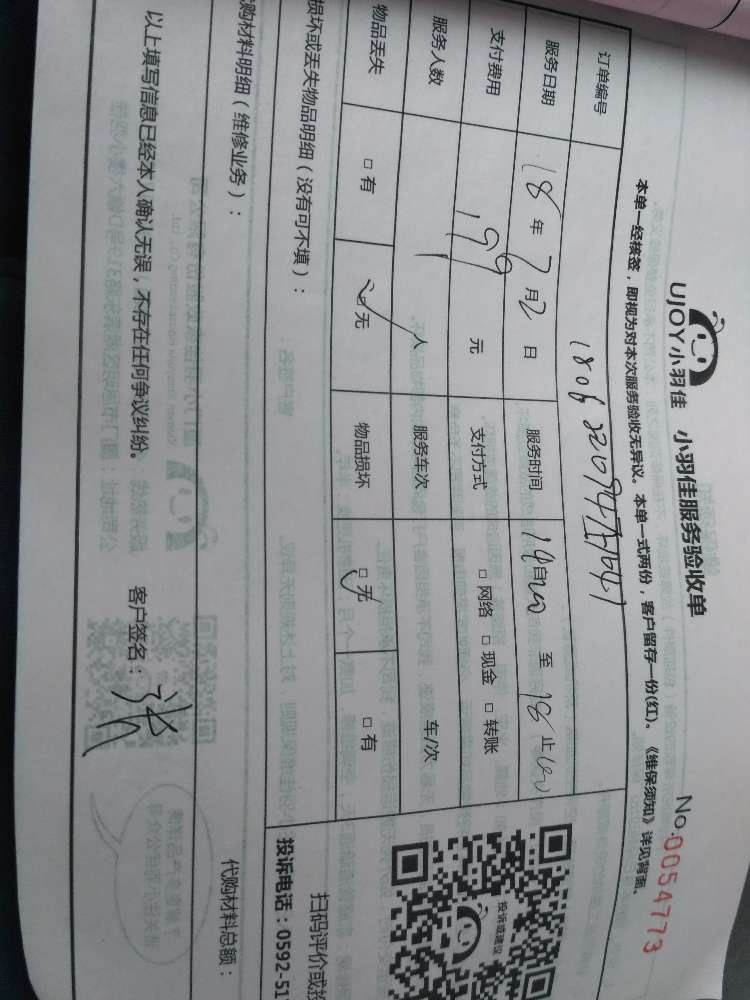 UJOY小羽佳 小羽佳服务验收单
No.0054773
本单一经核签，即视为对本次服务验收无异议。本单一式两份，客户留存一份(红)。《维保须知》详见背面。
订单编号
服务日期 18年7月2日 服务时间 自 至 18 止
支付费用 199元 支付方式 □网络 □现金 □转账
服务人数 1人 服务车次 车/次
物品丢失 □有 □无 物品损坏 □无 □有
损坏或丢失物品明细（没有可不填）：
投诉或建议
扫码评价或投
投诉电话：0592-51
代购材料明细（维修业务）：
代购材料总额：
以上填写信息已经本人确认无误，不存在任何争议纠纷。 客户签名：张